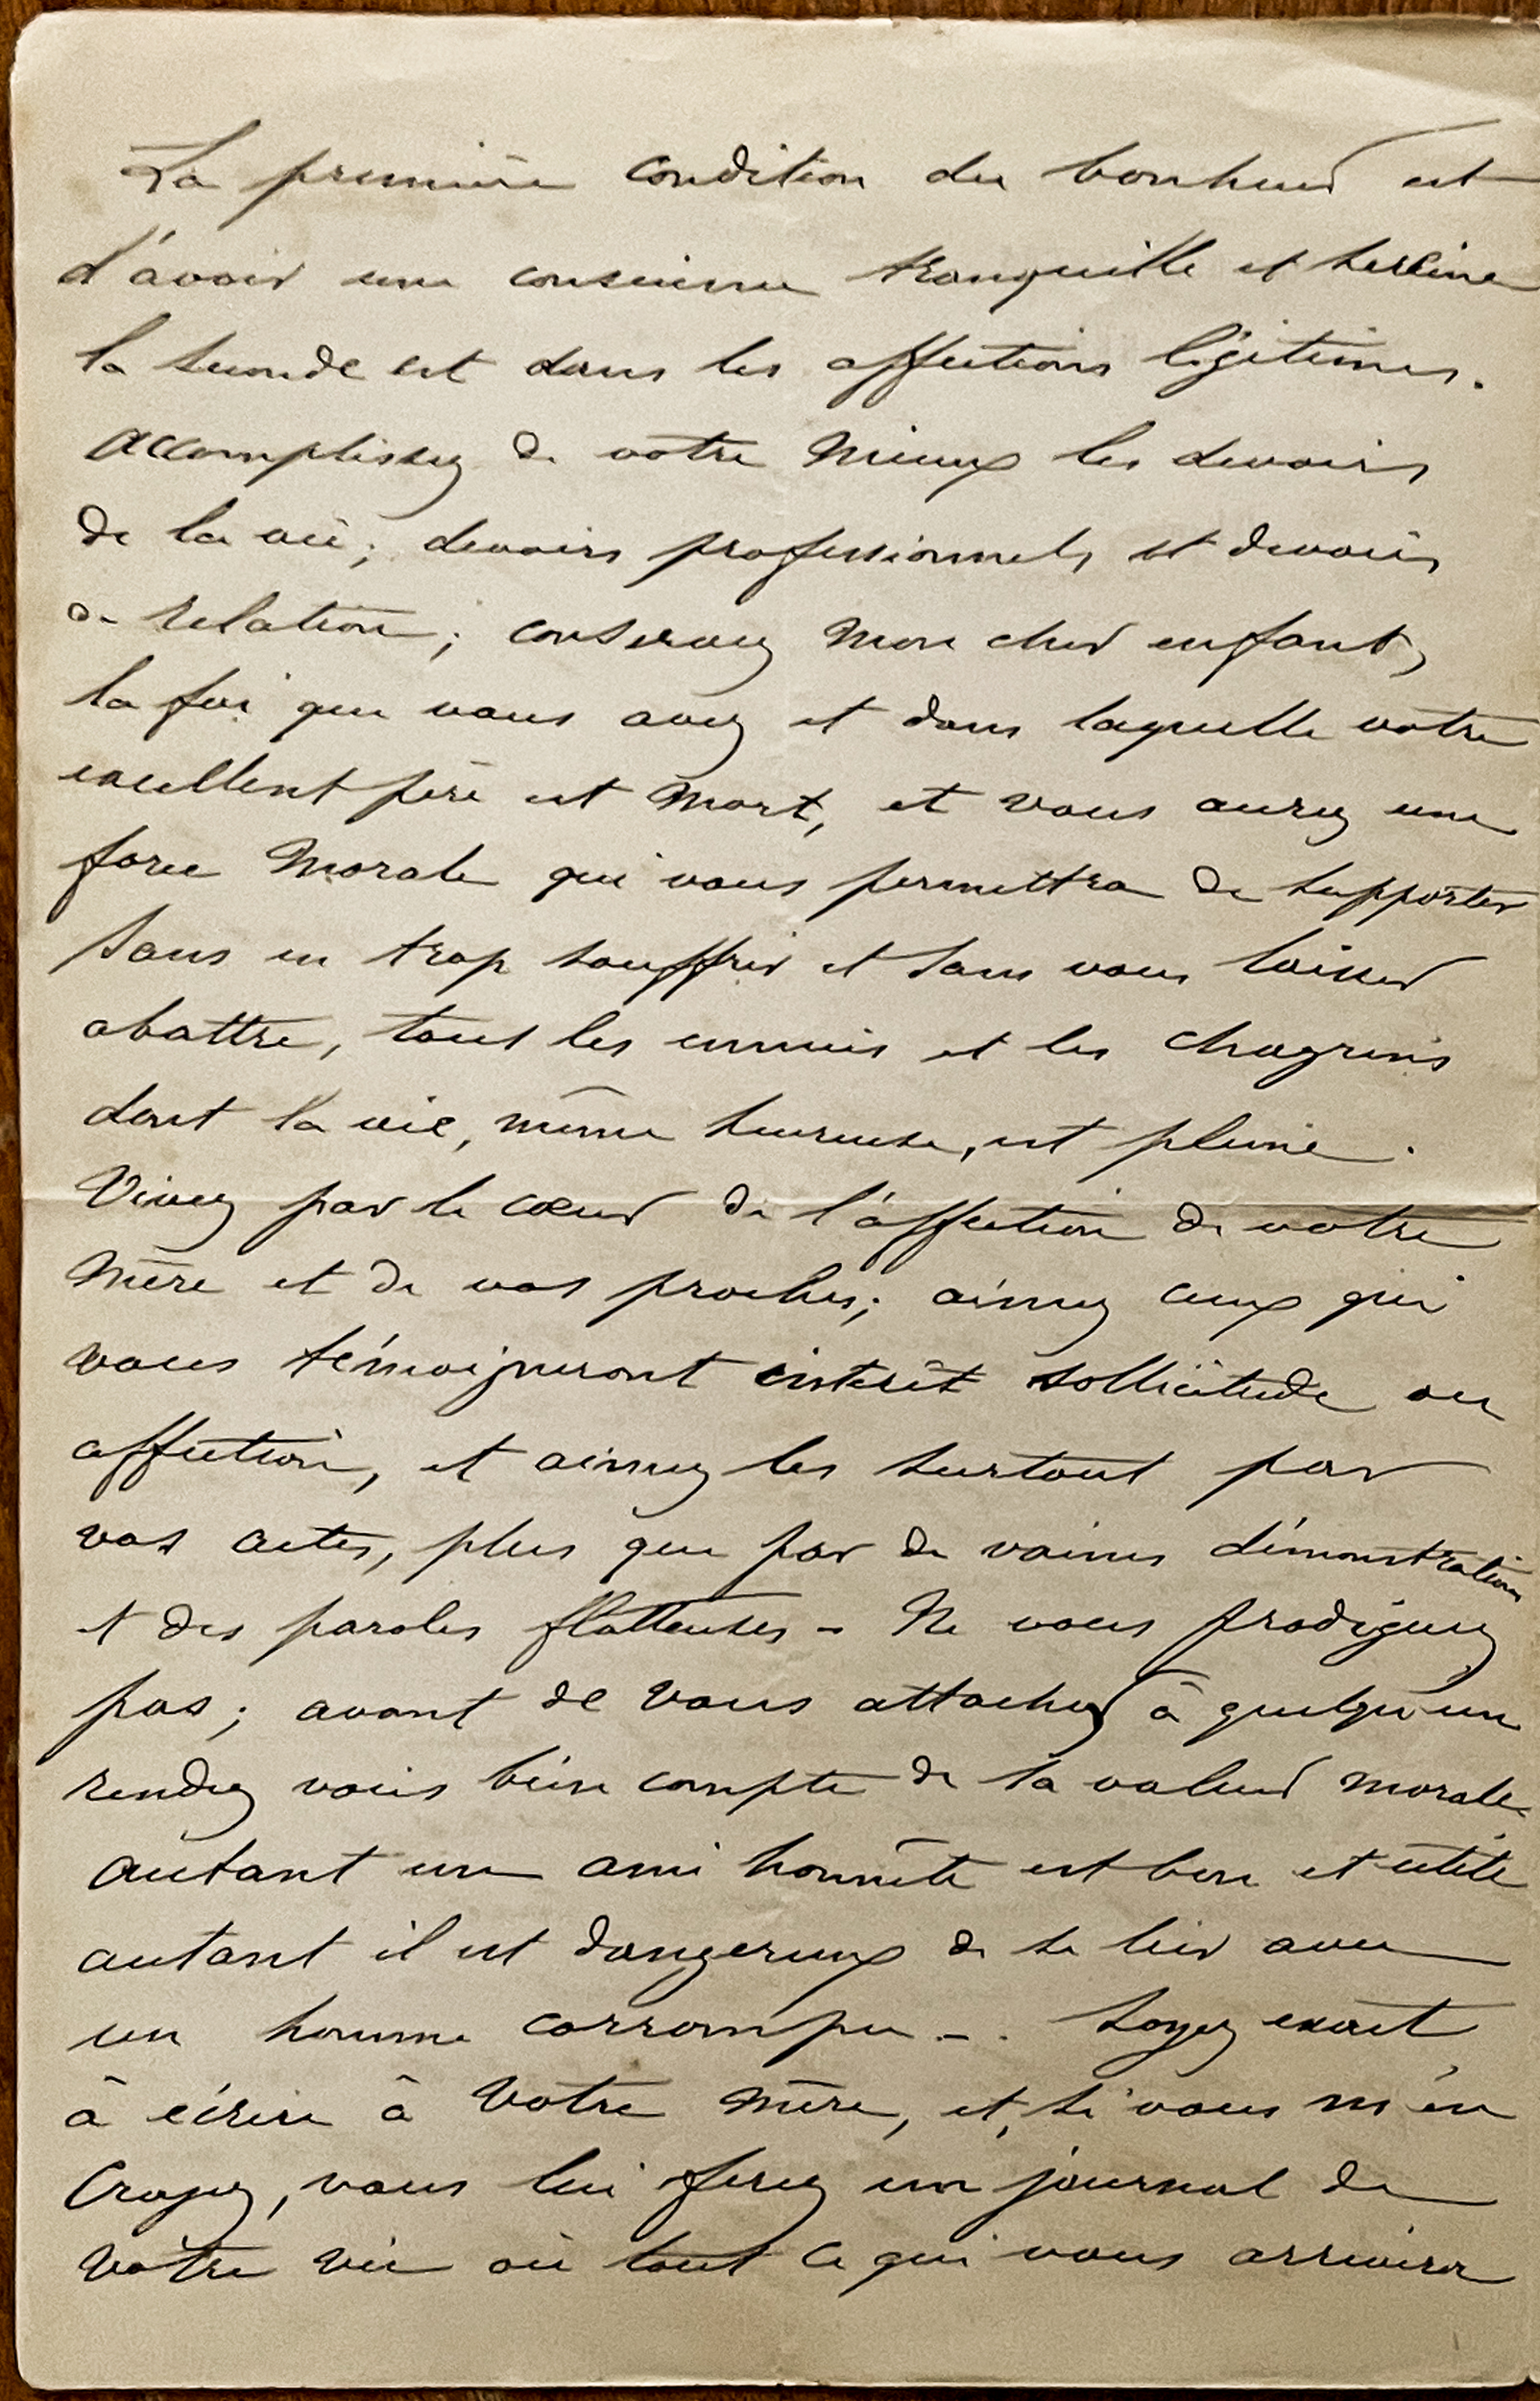 La première condition du bonheur est
d'avoir une conscience tranquille et sereine
la seconde est dans les affections légitimes.
accomplissez de votre mieux les devoirs
de la vie; devoirs professionnels et devoirs
de relation; conservez mon cher enfant,
la foi que vous avez et dans laquelle votre
excellent père est mort, et vous aurez une
force morale qui vous permettra de supporter
sans en trop souffrir et sans vous laisser
abattre, tous les ennuis et les chagrins
dont la vie, même heureuse, est pleine.
Vivez par le cœur de l'affection de votre
mère et de vos proches; aimez ceux qui
vous témoigneront intérêt sollicitude ou
affection, et aimez les surtout par
vos actes, plus que par de vaines démonstrations
et des paroles flatteuses - Ne vous prodiguez
pas; avant de vous attacher à quelqu'un
rendez vous bien compte de sa valeur morale
autant un ami honnête est bon et utile
autant il est dangereux de se lier avec
un homme corrompu -. Soyez exact
à écrire à votre mère, et, si vous m'en
croyez, vous lui ferez un journal de
votre vie où tout ce qui vous arrivera